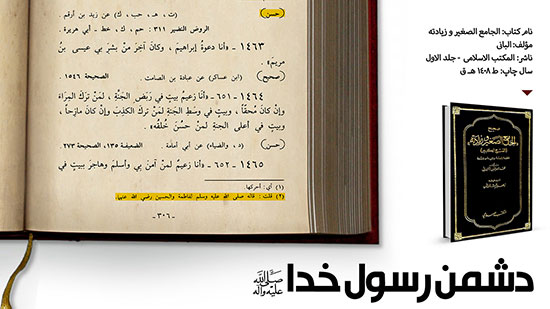 نام کتاب: الجامع الصغیر و زیادته
مؤلف: البانی
ناشر: المکتب الاسلامی - جلد الاول
سال چاپ: ط ۱۴۰۸ هـ ق
(حسن) (ت، هـ، حب، ك) عن زيد بن أرقم.
الروض النضير ٣١١: حم، ك، خط - أبي هريرة.
١٤٦٣ - «أنا دعوة إبراهيم، وكان آخر من بشر بي عيسى بن
مريم».
(صحيح) (ابن عساكر) عن عبادة بن الصامت. الصحيحة ١٥٤٦.
١٤٦٤ - ٦٥١ - «أنا زعيم بيت في ربض الجنة، لمن ترك المراء
وإن كان محقا، وبيت في وسط الجنة لمن ترك الكذب وإن كان مازحا،
وبيت في أعلى الجنة لمن حسن خلقه».
(حسن) (د، والضياء) عن أبي أمامة. الصحيفة ١٣٥، الصحيحة ٢٧٣.
١٤٦٥ - ٦٥٢ - «أنا زعيم لمن آمن بي وأسلم وهاجر ببيت في
(١) أي: أحركها.
(٢) قلت: قاله صلى الله عليه وسلم لفاطمة والحسنين رضي الله عنهم.
- ٣٠٦ -
صحيح
الجامع الصغير وزيادته
دشمن رسول خدا صلی الله علیه وآله